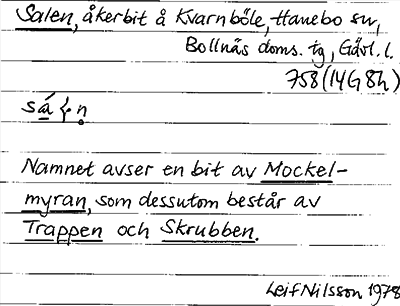 Salen, åkerbit å Kvarnböle, Hanebo sn,
Bollnäs doms. tg, Gävl. l.
758 (14G 8h)
Namnet avser en bit av Mockel-
myran, som dessutom består av
Trappen och Skrubben.
Leif Nilsson 1978